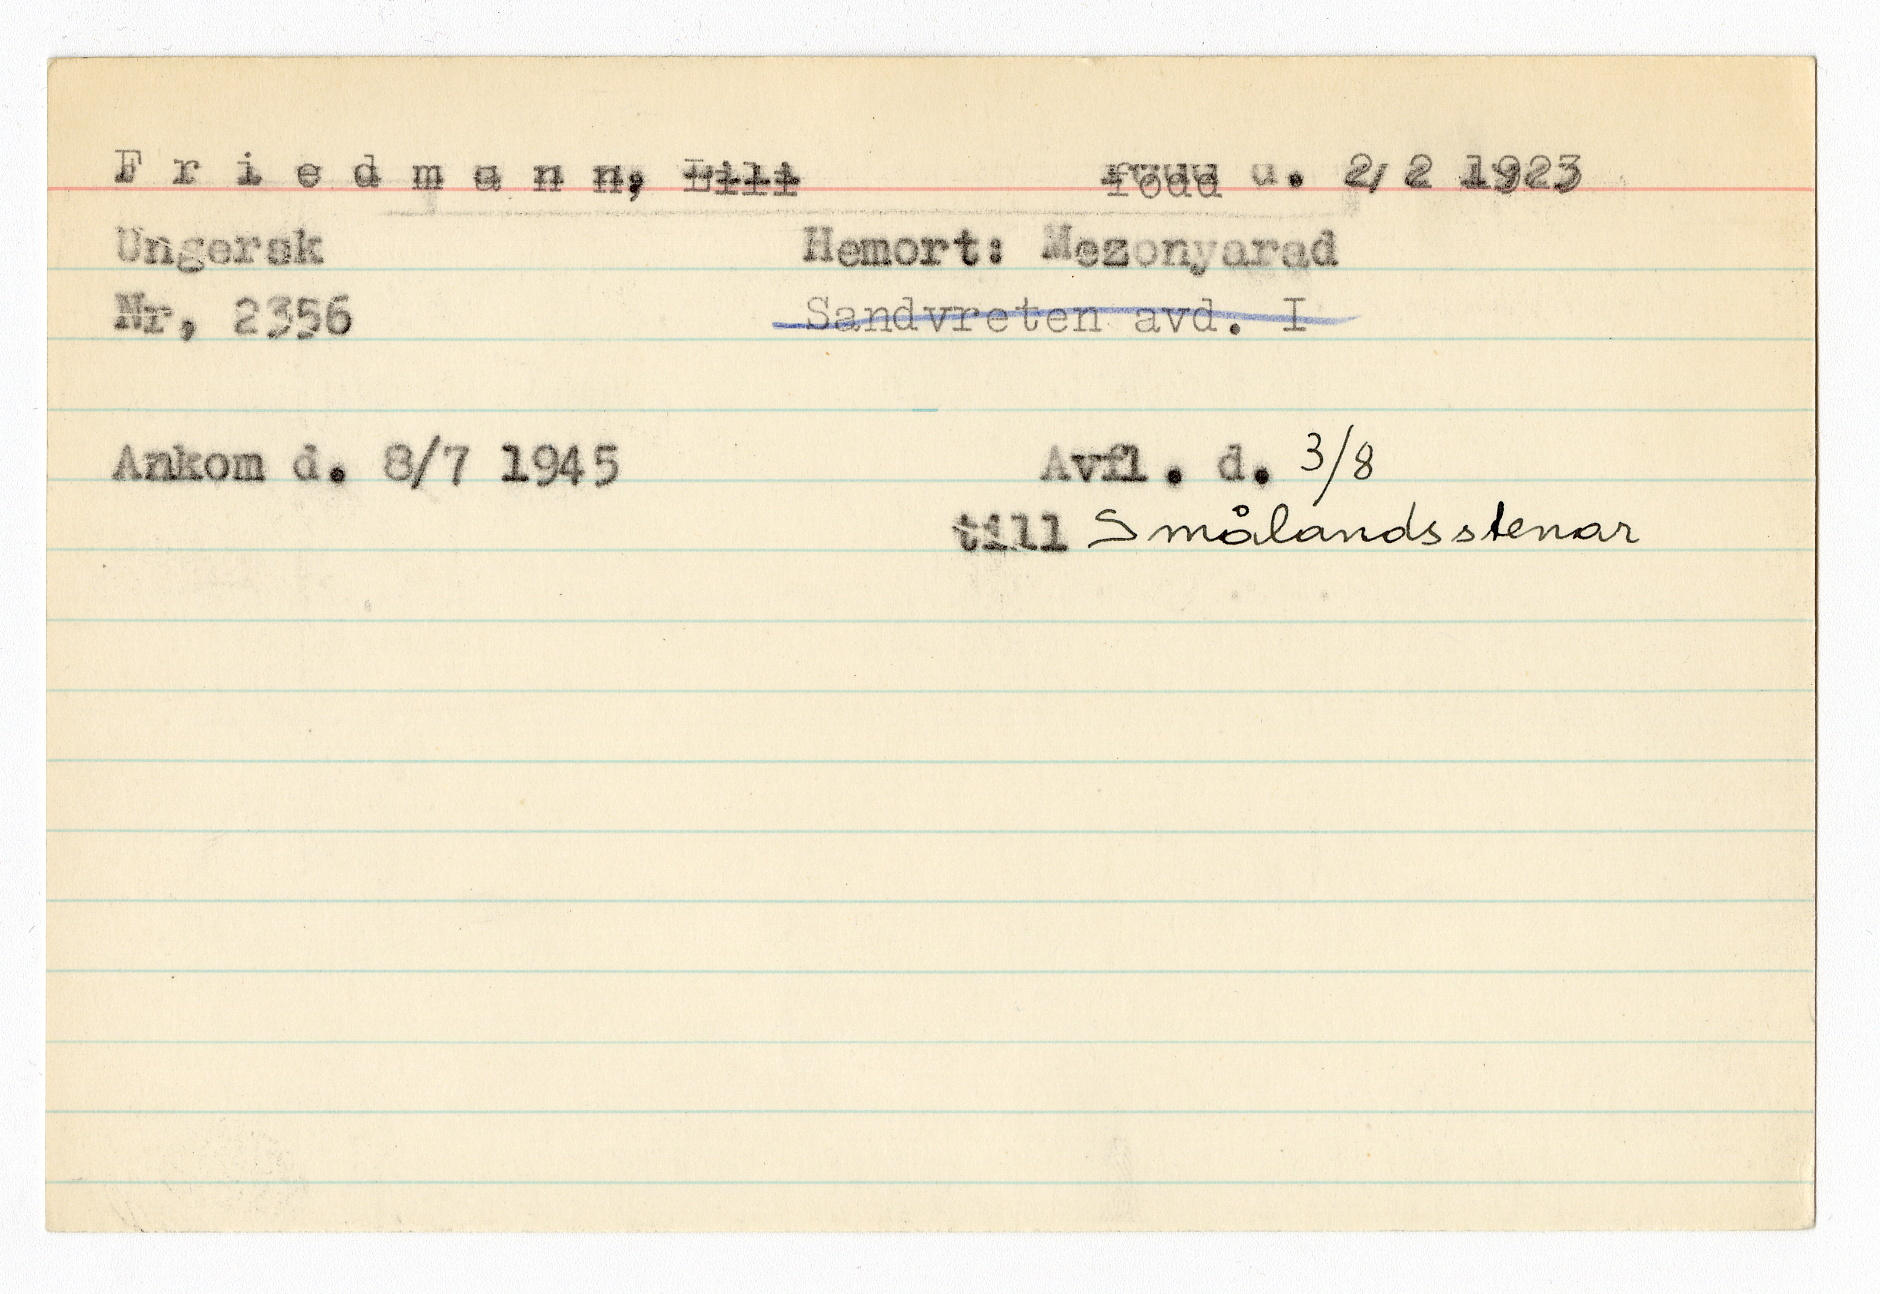 F r i e d m a n n, Lili född d. 2/2 1923
Ungersk Hemort: Mezonyarad
Nr, 2356 Sandvreten avd. I
Ankom d. 8/7 1945 Avfl. d. 3/8
till Smålandsstenar